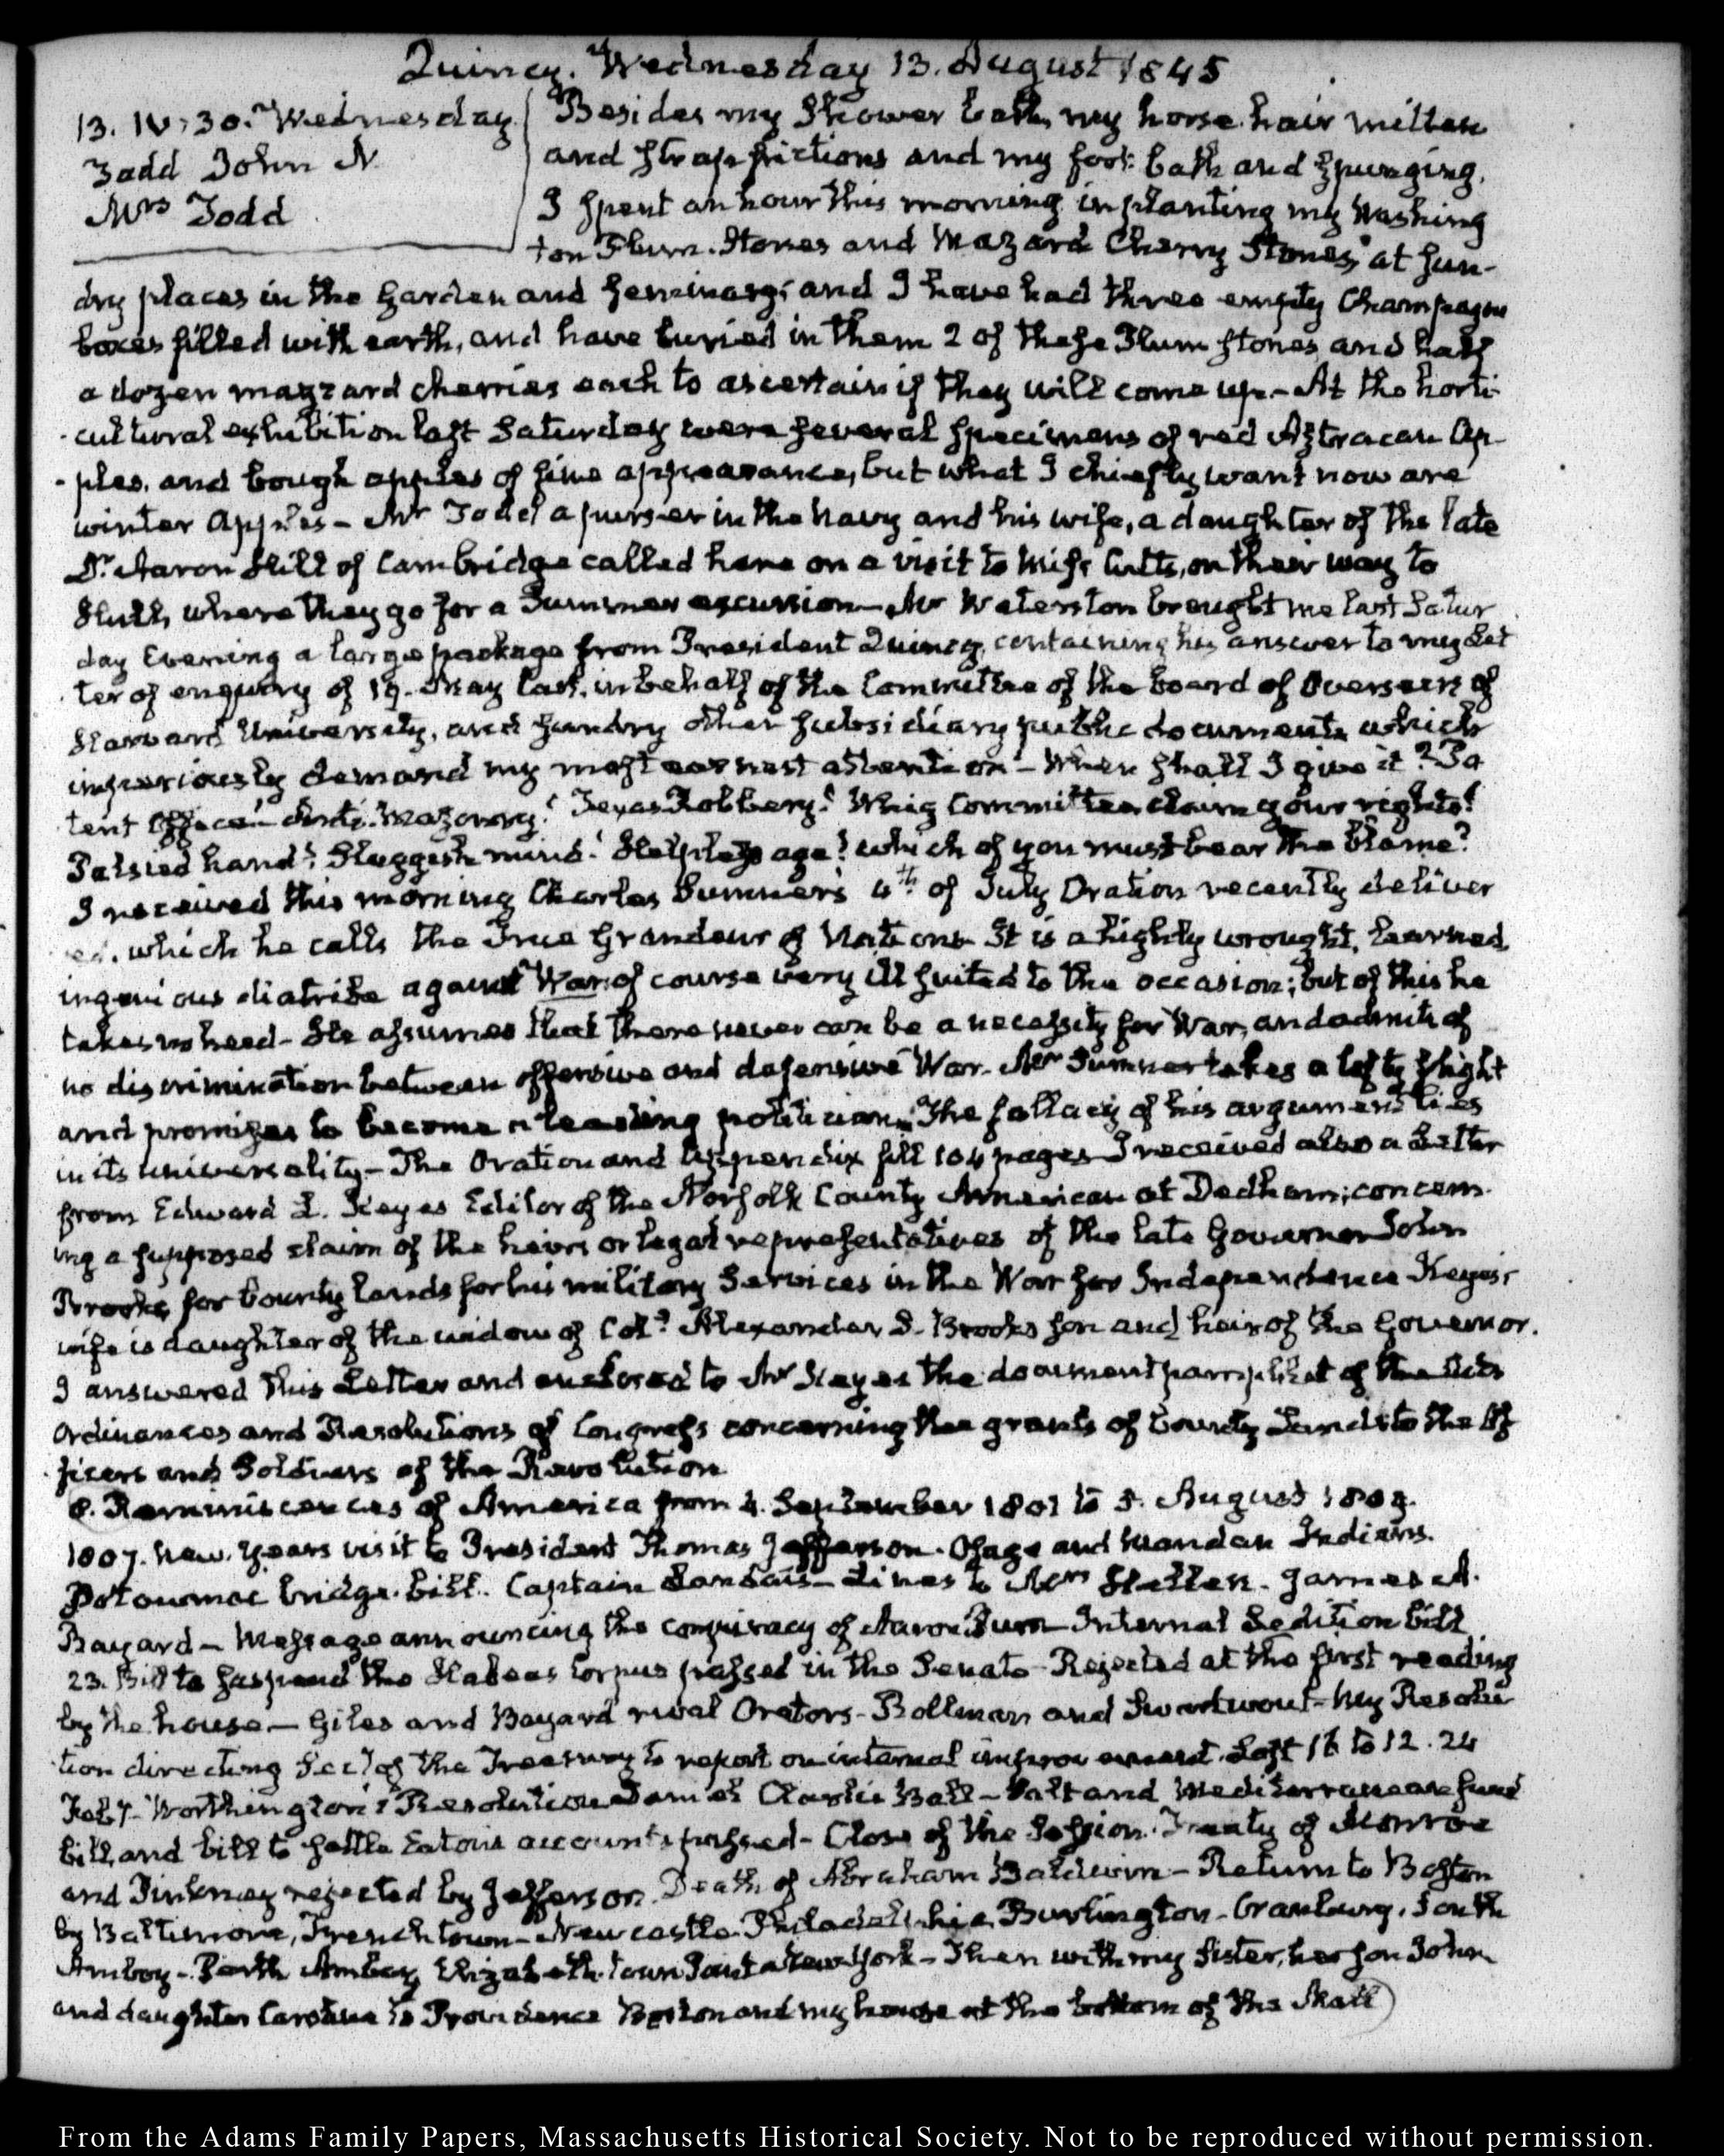 Quincy. Wednesday 13. August 1845
13. IV: 30. Wednesday
Todd John N.
Mrs Todd
Besides my Shower bath, my horse hair mitten
and strap frictions and my foot bath and spunging.
I spent an hour this morning in planting my Washing
ton Plum. Stones and Mazard Cherry Stones, at sun-
dry places in the Garden and Seminary; and I have had three empty Champagne
boxes filled with earth, and have buried in them 2 of these Plum stones and half
a dozen mazzard cherries each to ascertain if they will come up.- At the horti-
-cultural exhibition last Saturday were several specimens of red Astracan Ap-
-ples, and bough apples of fine appearance, but what I chiefly want now are
winter Apples- Mr Todd a purser in the Navy and his wife, a daughter of the late
Dr. Aaron Hill of Cambridge called here on a visit to Miss Cutts, on their way to
Hull, where they go for a Summer excursion- Mr Waterston brought me last Satur
day Evening a large package from President Quincy, containing his answer to my Let
ter of enquiry of 19. May last, in behalf of the Committee of the board of Overseers of
Harvard University, and sundry other subsidiary public documents which
imperiously demand my most earnest attention- When shall I give it? Pa
tent Office! Anti. Mazonry! Texas Robbery! Whig Committee claim your rights!
Palsied hand! Sluggish mind! Helpless age! which of you must bear the blame?
I received this morning Charles Sumner's 4th of July Oration recently deliver
ed. which he calls the True Grandeur of Nations It is a highly wrought, learned,
ingenious diatribe against War. of course very ill suited to the occasion; but of this he
takes no heed- He assumes that there never can be a necessity for War, and admits of
no discrimination between offensive and defensive War. Mr Sumner takes a lofty flight
and promises to become a leading politician. The fallacy of his argument lies
in its universality- The Oration and Appendix fill 104 pages- I received also a Letter
from Edward L. Keyes Editor of the Norfolk County American at Dedham; concern-
ing a supposed claim of the heirs or legal representatives of the late Governor John
Brooks for bounty lands for his military Services in the War for Independence Keyes's
wife is daughter of the widow of Col? Alexander S. Brooks son and heir of the Governor.
I answered this Letter and enclosed to Mr Keyes the document pamphlet of the Acts
Ordinances and Resolutions of Congress concerning the grants of bounty Lands to the Of
ficers and Soldiers of the Revolution
8. Reminiscences of America from 4. September 1801 to 5. August 1809.
1807. New. Years visit to President Thomas Jefferson. Osage and Mandan Indians.
Potowmac bridge. bill. Captain Landais- Lines to Mrs Hellen. James A.
Bayard- Message announcing the conspiracy of Aaron Burr- Internal Sedition bill
23. Bill to suspend the Habeas Corpus passed in the Senate- Rejected at the first reading
by the house- Giles and Bayard rival Orators- Bollman and Swartwout- My Resolu
tion directing Secy of the Treasury to report on internal improvement. Lost 16 to 12. 24
Feby- Worthington's Resolution Same Charles Ball- Salt and Mediterranean fund
bill, and bill to settle Eatons accounts passed- Close of the Session. Treaty of Monroe
and Pinkney rejected by Jefferson. Death of Abraham Baldwin- Return to Boston
by Baltimore, Frenchtown- Newcastle. Philadelphia, Burlington- Cranbury. South
Amboy- Perth Amboy, Elizabeth. town Point a New York- Then with my Sister, her son John
and daughter Caroline to Providence Boston and my house at the bottom of the Mall)
From the Adams Family Papers, Massachusetts Historical Society. Not to be reproduced without permission.